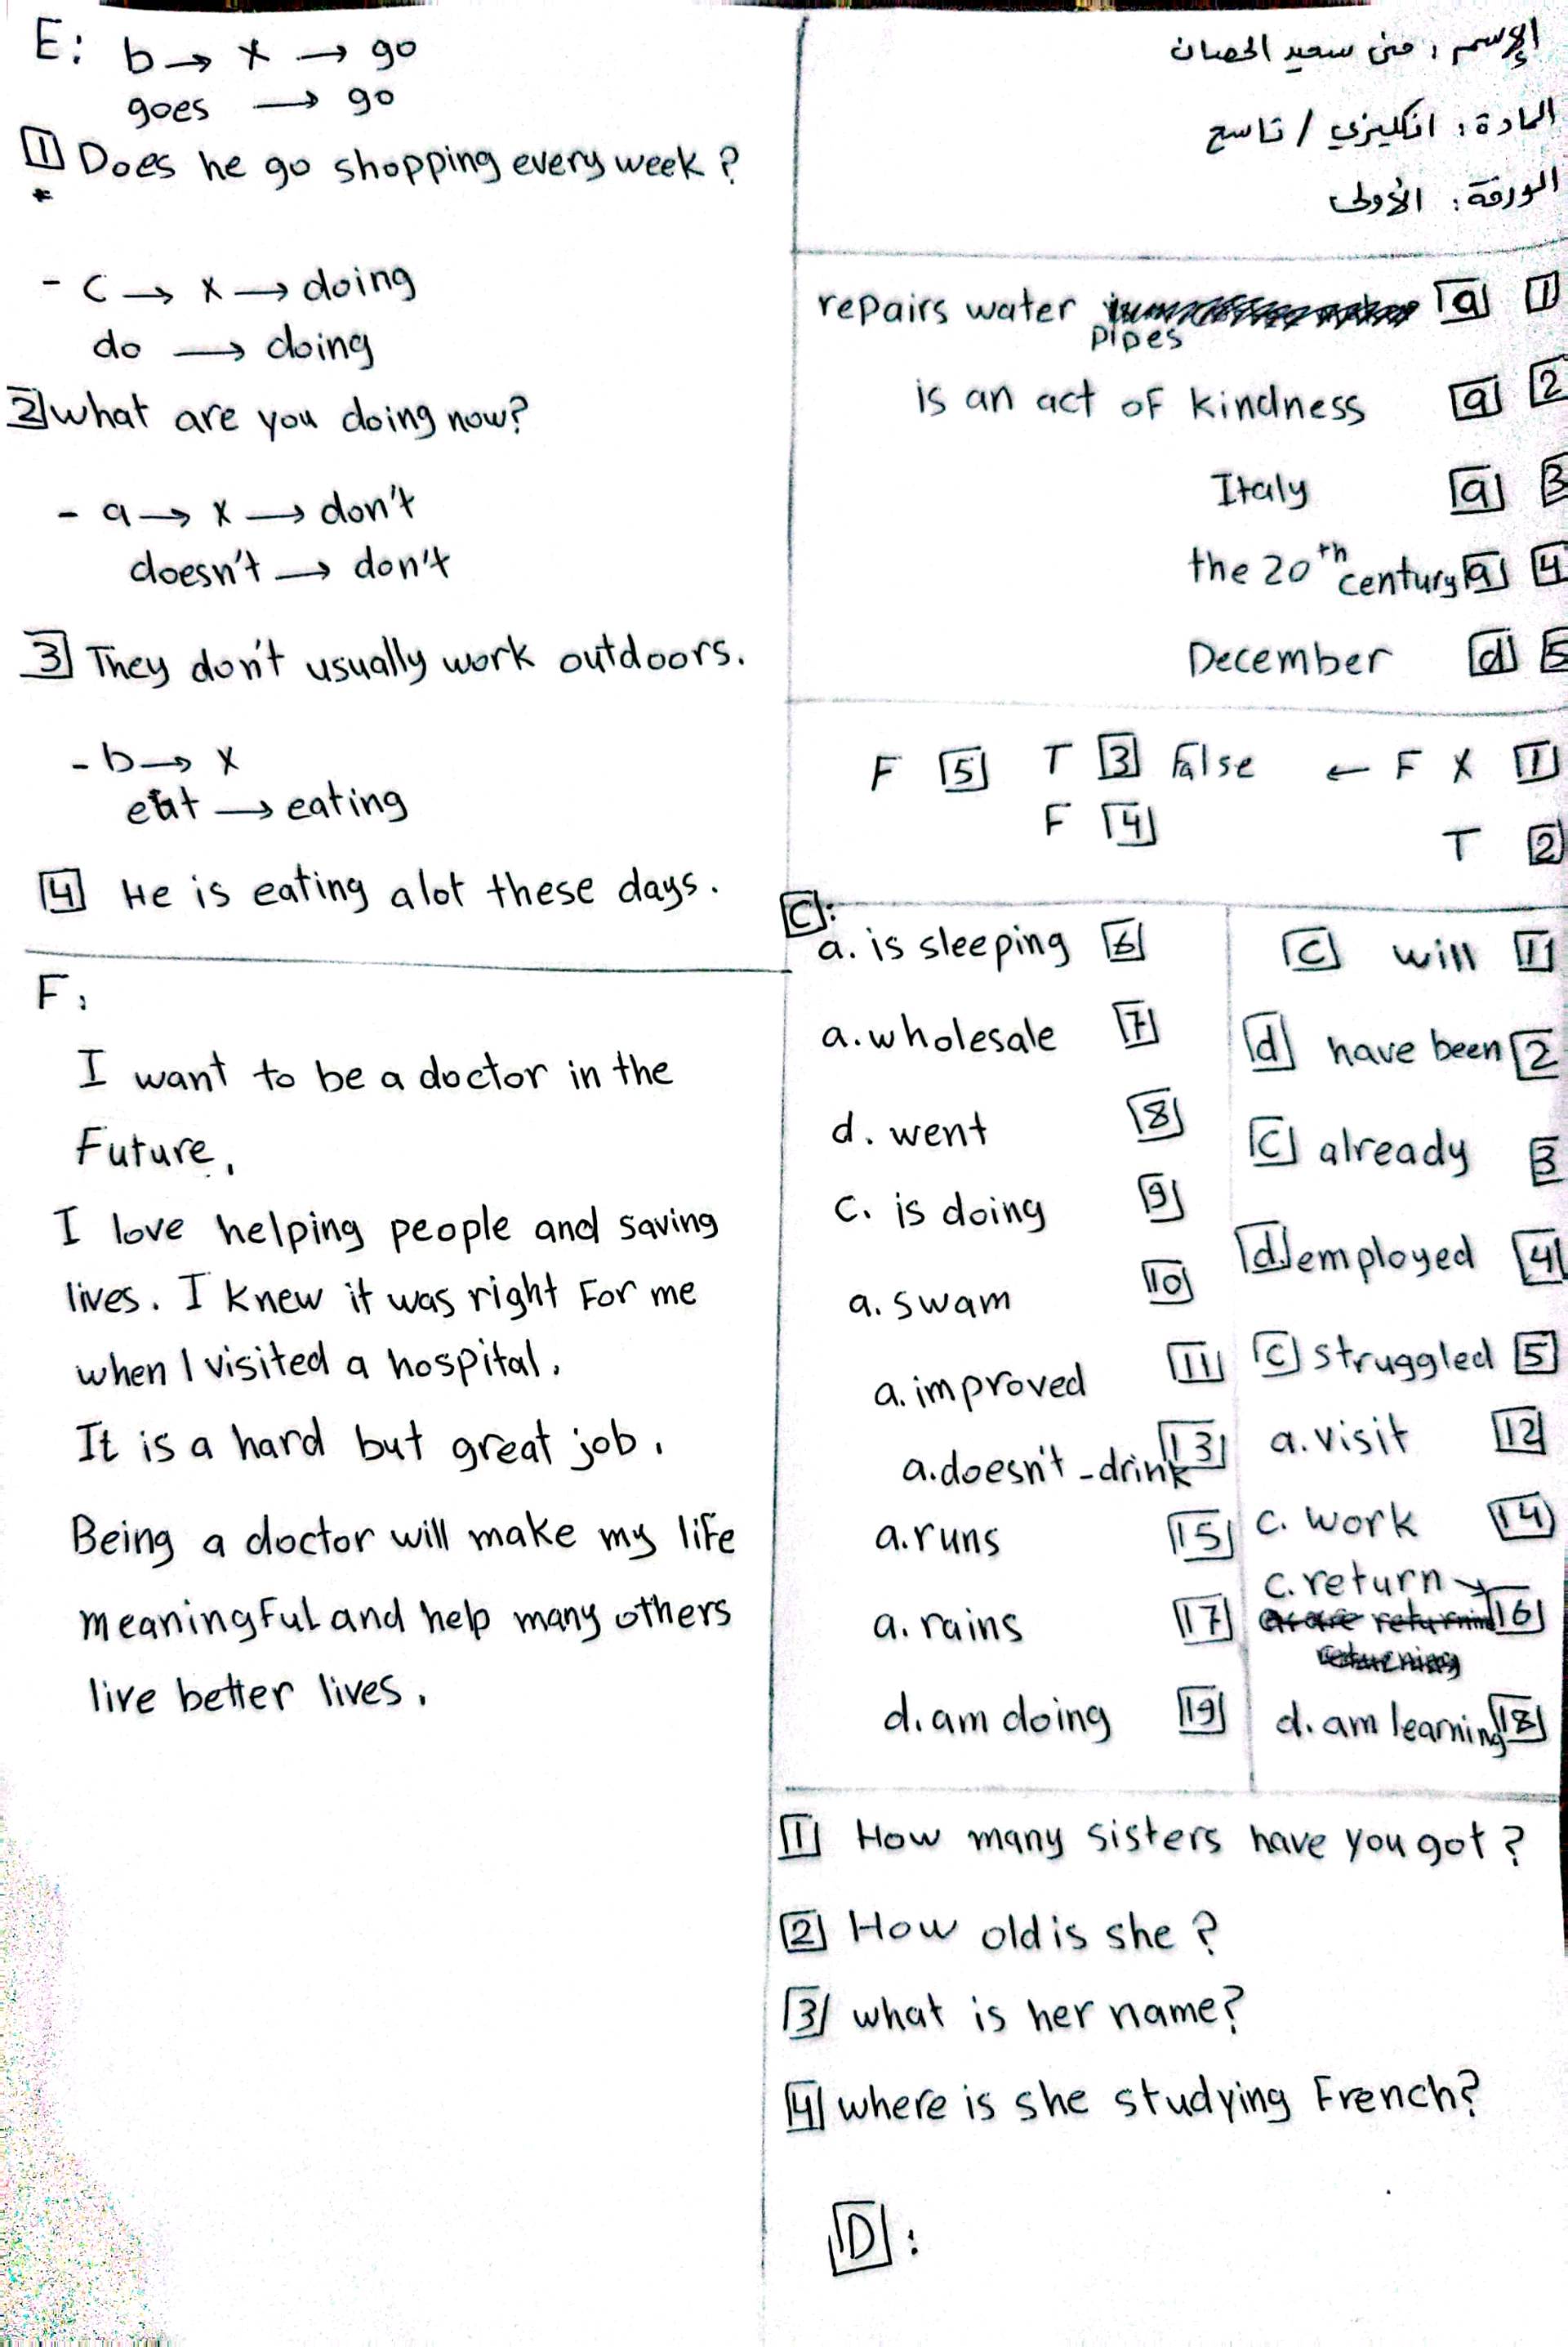 الإسم: منى سعيد الحصان
المادة: انكليزي / تاسع
الورقة: الأولى
1 a repairs water pipes
2 a is an act of kindness
3 a Italy
4 a the 20th century
5 d December
1 X F ← False
2 T
3 T
4 F
5 F
C:
1 will C
2 have been d
3 already C
4 employed d.
5 struggled C
6 a. is sleeping
7 a. wholesale
8 d. went
9 c. is doing
10 a. swam
11 a. improved
12 a. visit
13 a. doesn't - drink
14 c. work
15 a. runs
16 c. return
17 a. rains
18 d. am learning
19 d. am doing
1 How many sisters have you got?
2 How old is she?
3 what is her name?
4 where is she studying French?
D:
E: b → x → go
goes → go
1 Does he go shopping every week?
- c → x → doing
do → doing
2 what are you doing now?
- a → x → don't
doesn't → don't
3 They don't usually work outdoors.
- b → x
eat → eating
4 He is eating alot these days.
F:
I want to be a doctor in the
Future.
I love helping people and saving
lives. I knew it was right For me
when I visited a hospital.
It is a hard but great job.
Being a doctor will make my life
meaningful and help many others
live better lives.